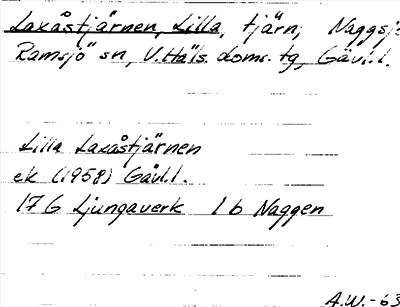 Laxåstjärnen, Lilla, tjärn, Naggsjö
Ramsjö sn, V. Häls. doms. tg, Gävl.l.
Lilla Laxåstjärnen
ek (1958) Gävl.l.
17 G Ljungaverk 1 b Naggen
A.W.-63